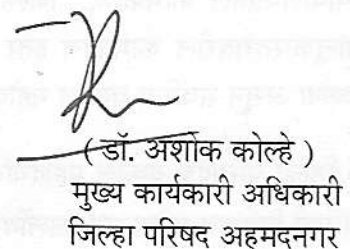 ( डॉ. अशोक कोल्हे )
मुख्य कार्यकारी अधिकारी
जिल्हा परिषद अहमदनगर